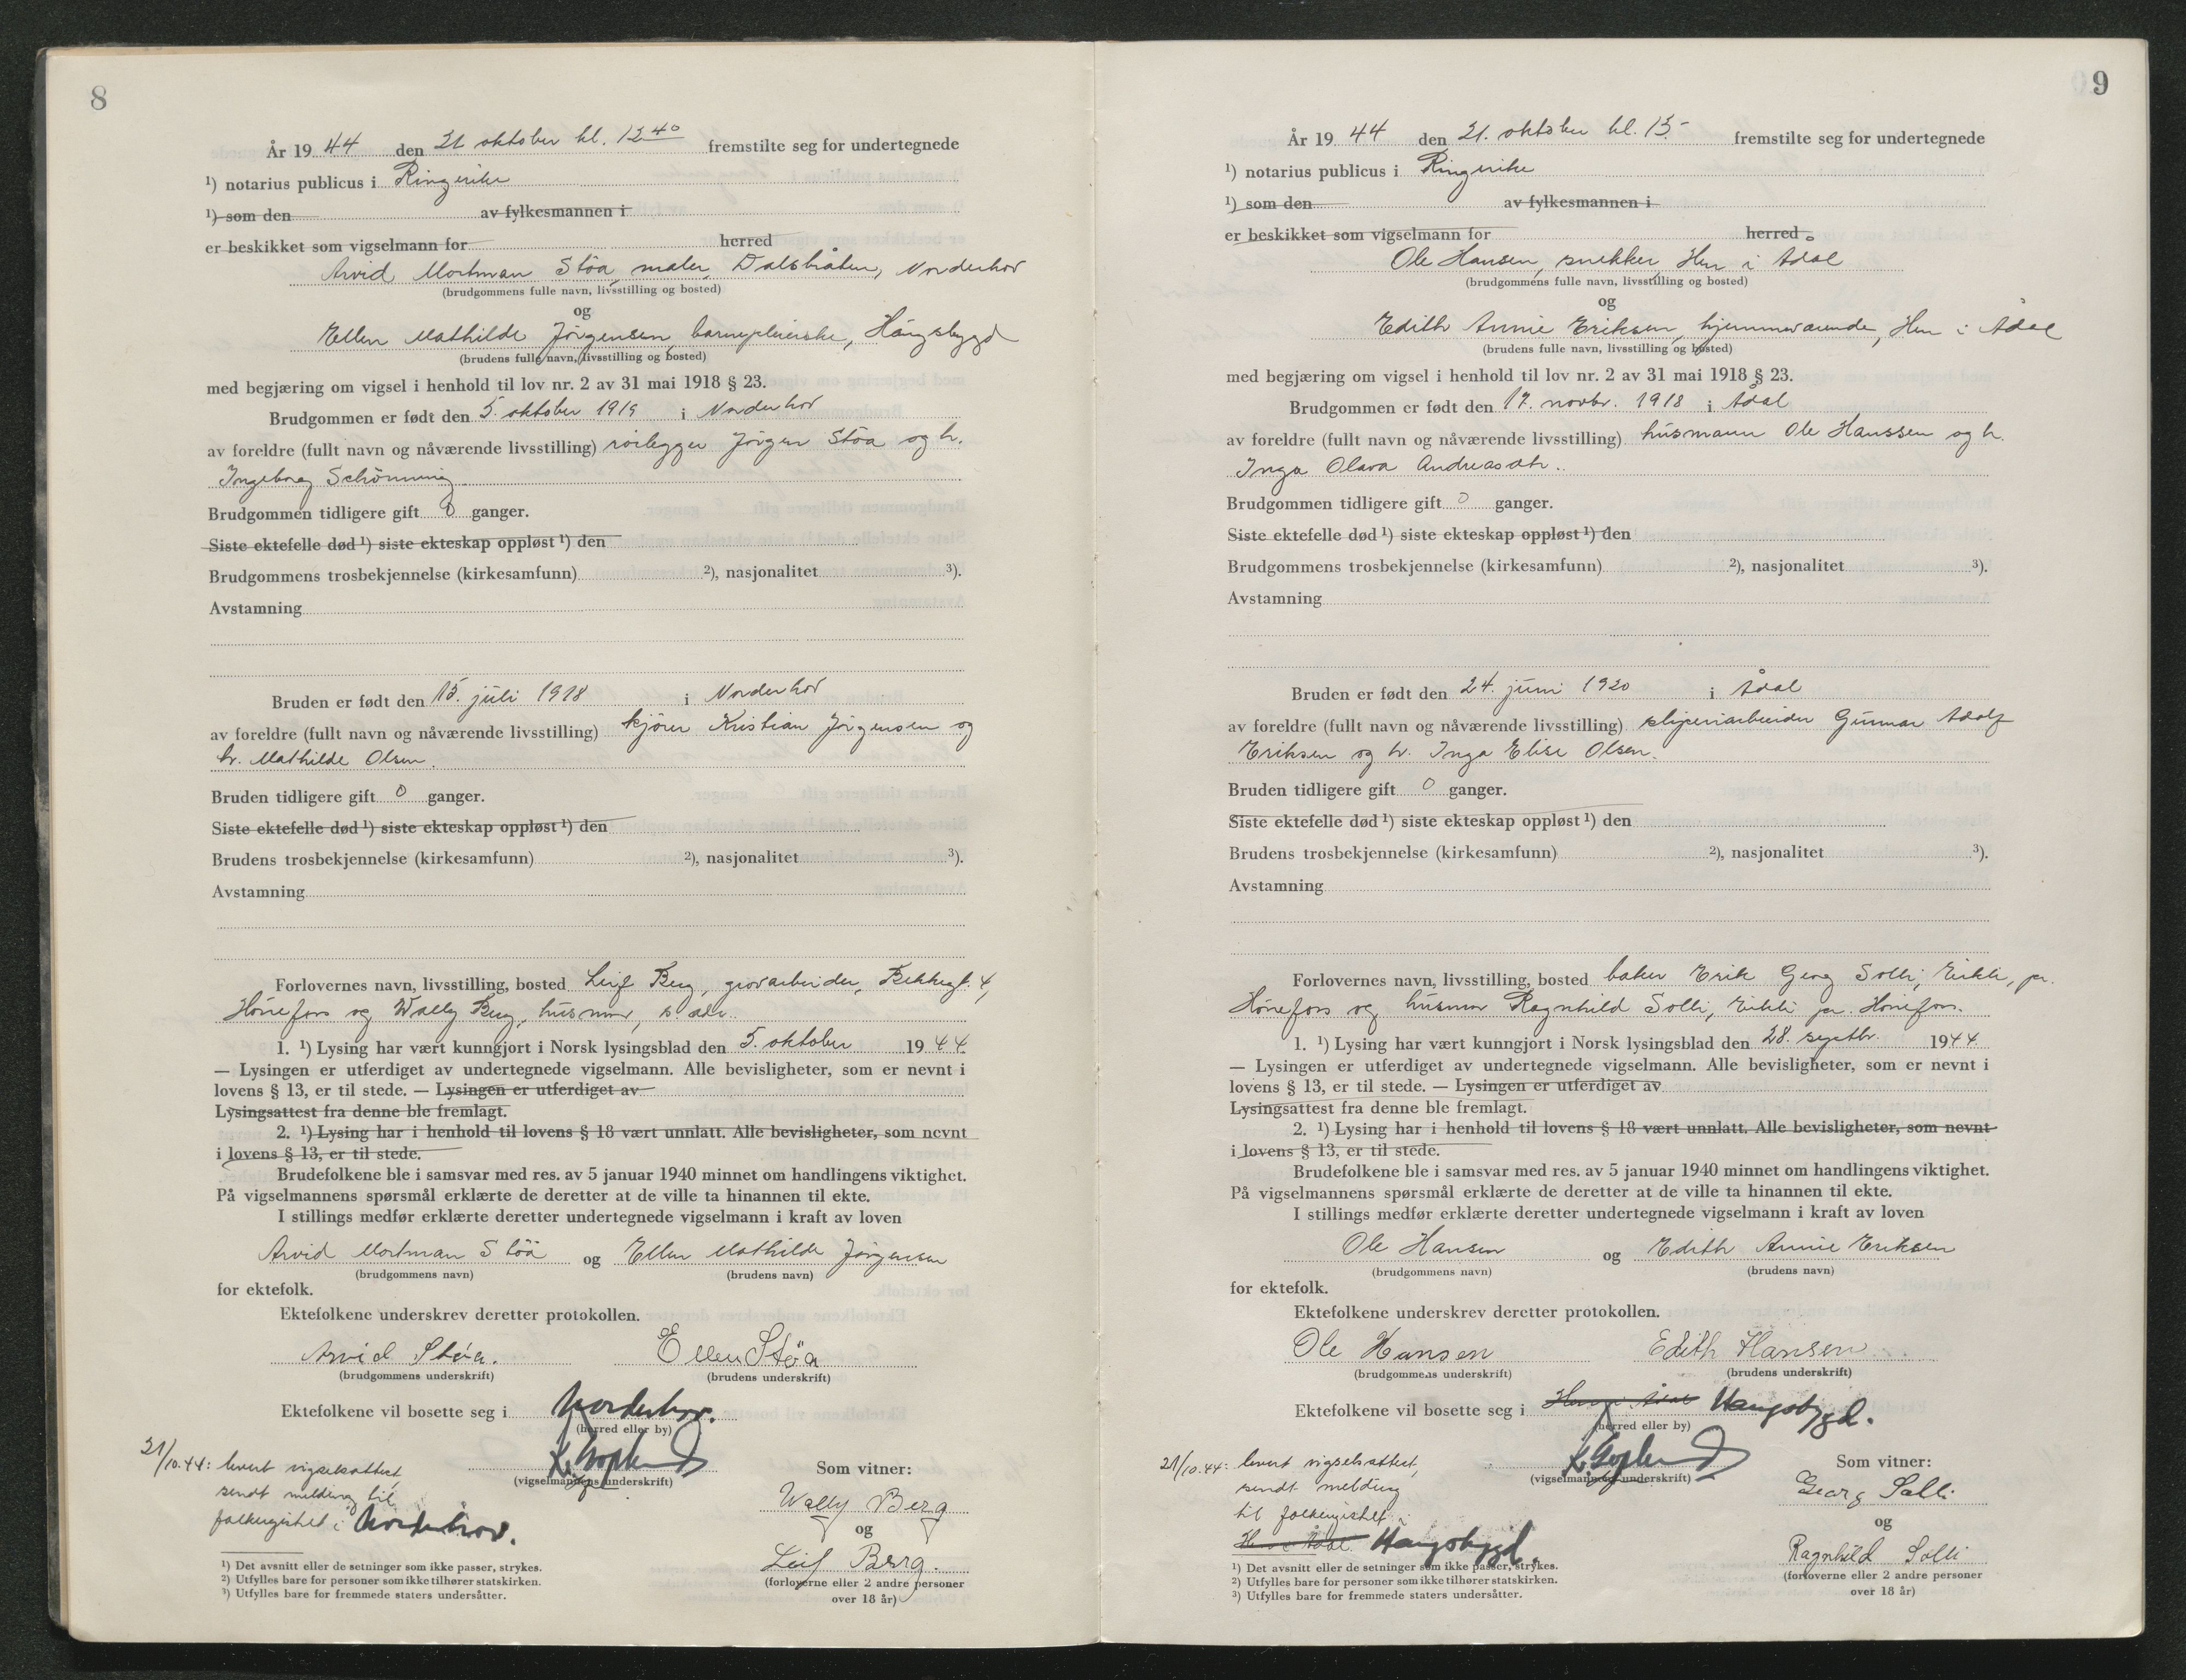 8
År 19 44 den 21 oktober kl. 12 40 fremstilte seg for undertegnede
¹) notarius publicus i Ringerike
¹) som den av fylkesmannen i
er beskikket som vigselmann for herred
Arvid Mortman Stöa, maler, Dalsbråten, Norderhov
(brudgommens fulle navn, livsstilling og bosted)
og
Ellen Mathilde Jörgensen, barnepleierske, Haugsbygd
(brudens fulle navn, livsstilling og bosted)
med begjæring om vigsel i henhold til lov nr. 2 av 31 mai 1918 § 23.
Brudgommen er født den 5. oktober 1919 i Norderhov
av foreldre (fullt navn og nåværende livsstilling) rörlegger Jörgen Stöa og h.
Ingeborg Schönning
Brudgommen tidligere gift 0 ganger.
Siste ektefelle død ¹) siste ekteskap oppløst ¹) den
Brudgommens trosbekjennelse (kirkesamfunn) ²), nasjonalitet ³).
Avstamning
Bruden er født den 15. juli 1918 i Norderhov
av foreldre (fullt navn og nåværende livsstilling) kjörer Kristian Jörgensen og
h. Mathilde Olsen.
Bruden tidligere gift 0 ganger.
Siste ektefelle død ¹) siste ekteskap oppløst ¹) den
Brudens trosbekjennelse (kirkesamfunn) ²), nasjonalitet ³).
Avstamning
Forlovernes navn, livsstilling, bosted Leif Berg, grovarbeider, Bekkegt. 4,
Hönefoss og Wally Berg, husmor, s. adr.
1. ¹) Lysing har vært kunngjort i Norsk lysingsblad den 5. oktober 19 44
— Lysingen er utferdiget av undertegnede vigselmann. Alle bevisligheter, som er nevnt i
lovens § 13, er til stede. — Lysingen er utferdiget av
Lysingsattest fra denne ble fremlagt.
2. ¹) Lysing har i henhold til lovens § 18 vært unnlatt. Alle bevisligheter, som nevnt
i lovens § 13, er til stede.
Brudefolkene ble i samsvar med res. av 5 januar 1940 minnet om handlingens viktighet.
På vigselmannens spørsmål erklærte de deretter at de ville ta hinannen til ekte.
I stillings medfør erklærte deretter undertegnede vigselmann i kraft av loven
Arvid Mortman Stöa og Ellen Mathilde Jörgensen
(brudgommens navn) (brudens navn)
for ektefolk.
Ektefolkene underskrev deretter protokollen.
Arvid Stöa. Ellen Stöa
(brudgommens underskrift) (brudens underskrift)
Ektefolkene vil bosette seg i Norderhov.
(herred eller by)
21/10.44: levert vigselsattest,
sendt melding til
folkeregistret i Norderhov.
(vigselmannens underskrift)
Som vitner:
Wally Berg
og
Leif Berg.
(forloverne eller 2 andre personer
over 18 år)
¹) Det avsnitt eller de setninger som ikke passer, strykes.
²) Utfylles bare for personer som ikke tilhører statskirken.
³) Utfylles bare for fremmede staters undersåtter.
9
År 19 44 den 21. oktober kl. 13- fremstilte seg for undertegnede
¹) notarius publicus i Ringerike
¹) som den av fylkesmannen i
er beskikket som vigselmann for herred
Ole Hansen, snekker, Hen i Ådal
(brudgommens fulle navn, livsstilling og bosted)
og
Edith Annie Eriksen, hjemmeværende, Hen i Ådal
(brudens fulle navn, livsstilling og bosted)
med begjæring om vigsel i henhold til lov nr. 2 av 31 mai 1918 § 23.
Brudgommen er født den 17. novbr. 1918 i Ådal
av foreldre (fullt navn og nåværende livsstilling) husmann Ole Hanssen og h.
Inga Olava Andreasdtr.
Brudgommen tidligere gift 0 ganger.
Siste ektefelle død ¹) siste ekteskap oppløst ¹) den
Brudgommens trosbekjennelse (kirkesamfunn) ²), nasjonalitet ³).
Avstamning
Bruden er født den 24. juni 1920 i Ådal
av foreldre (fullt navn og nåværende livsstilling) sliperiarbeider Gunnar Adolf
Eriksen og h. Inga Elise Olsen.
Bruden tidligere gift 0 ganger.
Siste ektefelle død ¹) siste ekteskap oppløst ¹) den
Brudens trosbekjennelse (kirkesamfunn) ²), nasjonalitet ³).
Avstamning
Forlovernes navn, livsstilling, bosted baker Erik Georg Solli, Eikli, pr.
Hönefoss og husmor Ragnhild Solli, Eikli pr. Hönefoss.
1. ¹) Lysing har vært kunngjort i Norsk lysingsblad den 28. septbr. 19 44
— Lysingen er utferdiget av undertegnede vigselmann. Alle bevisligheter, som er nevnt i
lovens § 13, er til stede. — Lysingen er utferdiget av
Lysingsattest fra denne ble fremlagt.
2. ¹) Lysing har i henhold til lovens § 18 vært unnlatt. Alle bevisligheter, som nevnt
i lovens § 13, er til stede.
Brudefolkene ble i samsvar med res. av 5 januar 1940 minnet om handlingens viktighet.
På vigselmannens spørsmål erklærte de deretter at de ville ta hinannen til ekte.
I stillings medfør erklærte deretter undertegnede vigselmann i kraft av loven
Ole Hansen og Edith Annie Eriksen
(brudgommens navn) (brudens navn)
for ektefolk.
Ektefolkene underskrev deretter protokollen.
Ole Hansen Edith Hansen
(brudgommens underskrift) (brudens underskrift)
Ektefolkene vil bosette seg i Hen i Ådal Haugsbygd.
(herred eller by)
21/10.44: levert vigselsattest,
sendt melding
til folkeregistret i
Hen i Ådal Haugsbygd.
(vigselmannens underskrift)
Som vitner:
Georg Solli
og
Ragnhild Solli
(forloverne eller 2 andre personer
over 18 år)
¹) Det avsnitt eller de setninger som ikke passer, strykes.
²) Utfylles bare for personer som ikke tilhører statskirken.
³) Utfylles bare for fremmede staters undersåtter.